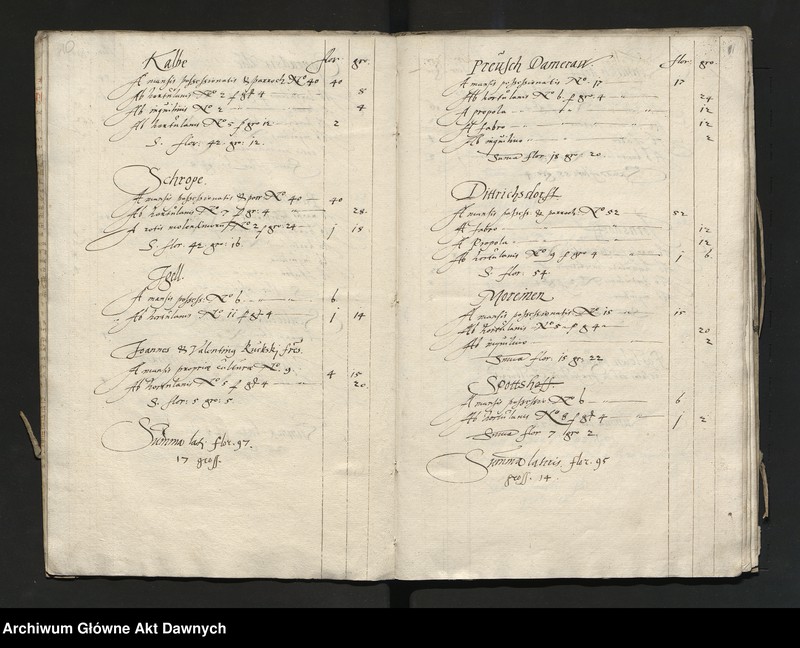 Kalbe flor. gro.
A mansis possessionatis & parroch. No 40 40
Ab hortulanis No 2 p gr 4 8
Ab inquilinis No 2 4
Ab hortulanis No 5 p gro 12 2
S. flor: 42. gr: 12.
Schrope.
A mansis possessionatis & parr. No 40 40
Ab hortulanis No 7 p gr. 4 28.
A rotis molendinorum No 2 p gr. 24 j 18
S. flor 42 gr: 16
Igell.
A mansis possess: No 6 6
Ab hortulanis No 11 p gr 4 j 14
Joannes & Valentinus Kucksky fres.
A mansis propriae culturae No. 9. 4 15
Ab hortulanis No 5 p gr 4 20.
S. flor: 5 gro: 5
Summa lat. flor. 97.
17 gross.
Preüsch Dameraw. flor. gro.
A mansis possessionatis No. 17 17
Ab hortulanis No 6 p gr. 4 24
A propola 12
A fabro 12
Ab inquilino 2
Summa flor 18 gro 20.
Dittrichsdorff
A mansis possess. & parroch. No 52 52
A fabro 12
A propola 12
Ab hortulanis No 9 p gro 4 j 6
S. flor. 54
Moreinen
A mansis possessionatis No 15 15
Ab hortulanis No 5 p gr 4 20
Ab inquilino 2
Summa flor. 15 gr. 22
Spottshoff.
A mansis possessis No 6 6
Ab hortulanis No 8 p gr 4 j 2
Summa flor 7 gro 2
Summa lateris flor. 95
gross. 14.
Archiwum Główne Akt Dawnych